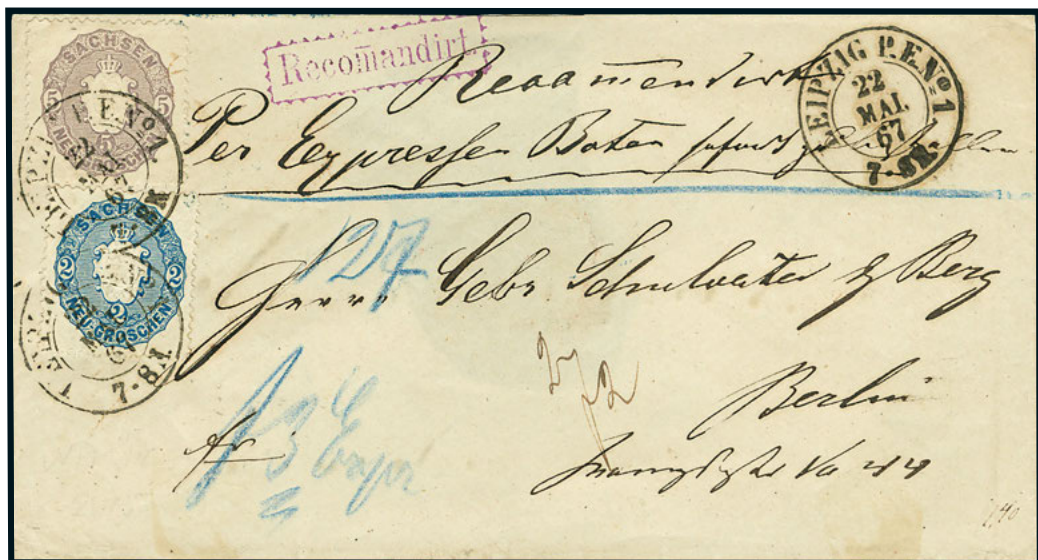 SACHSEN
5 5
5
NEU-GROSCHEN
SACHSEN
2 2
2
NEU-GROSCHEN
7-8N.
Recom̄andirt
LEIPZIG P.E.No. 1.
22
MAI.
67
7-8N.
Recomendirt
Per Expressen Boten sofort zu bestellen
127
Herrn Gebr Schulvater & Berg
Berlin
No 44
fr
3 Expr
2/2